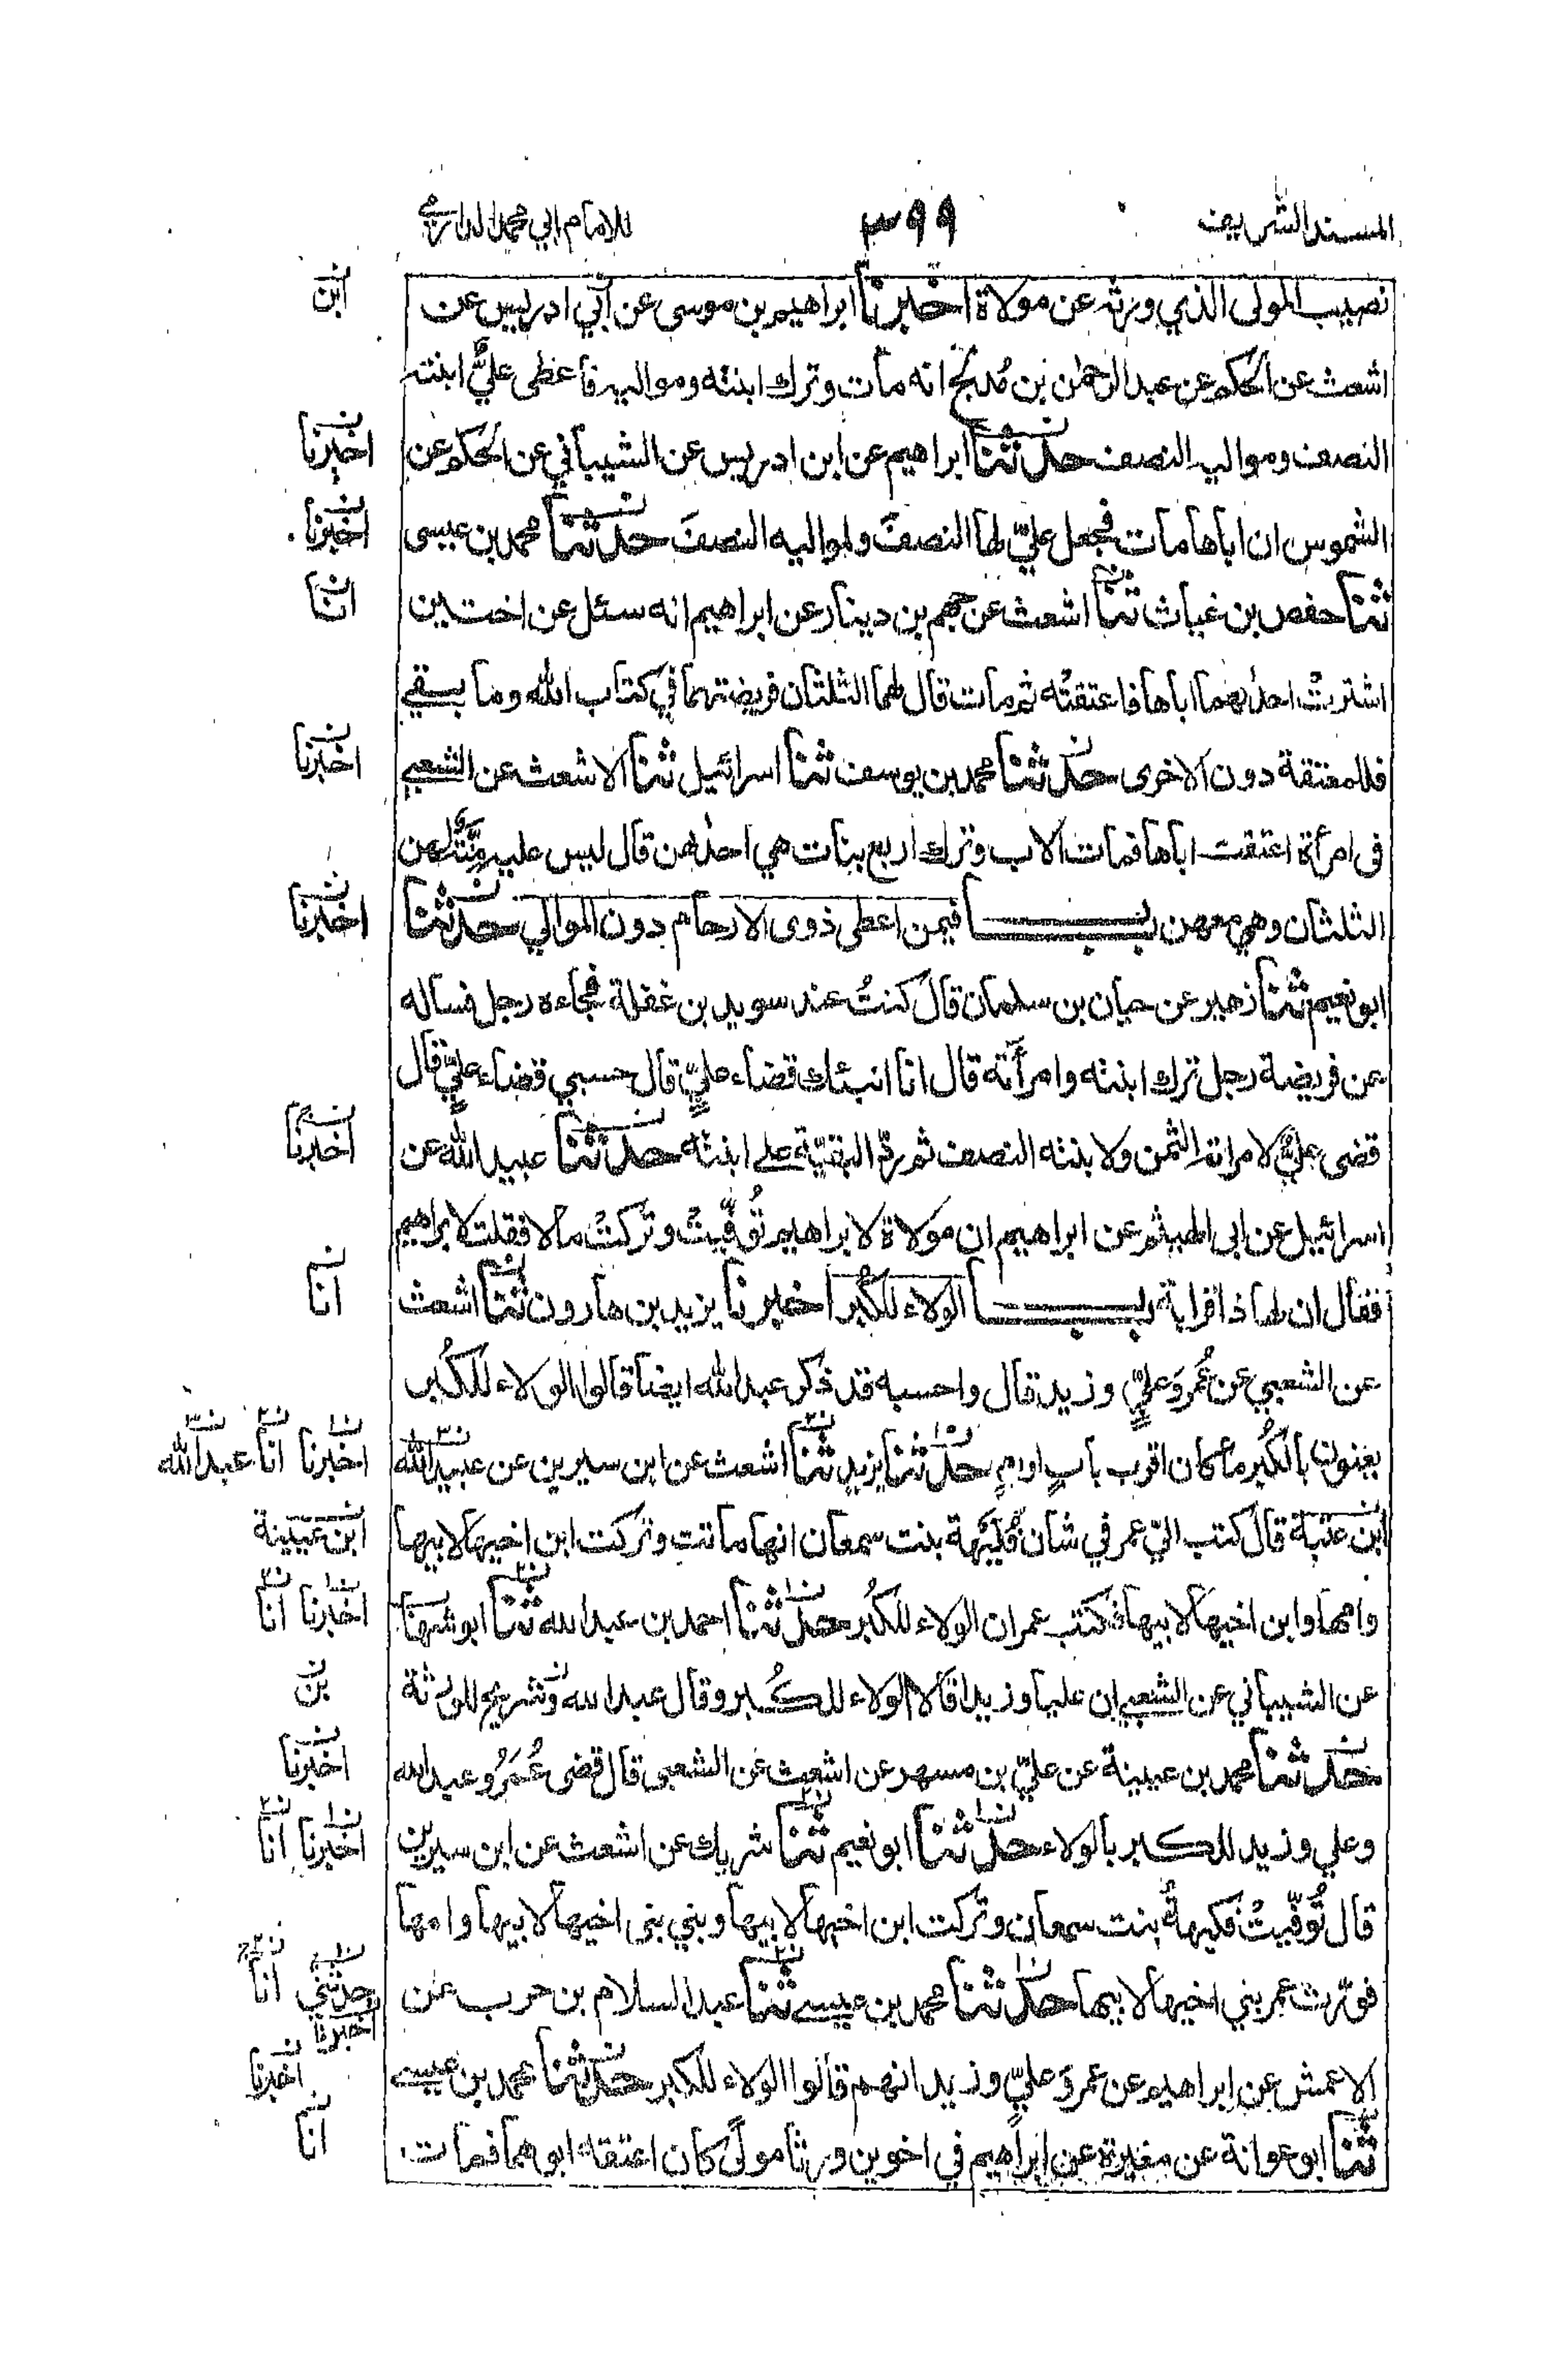 المسند الشريف
٣٩٩
للامام ابي محمد الدارمي
نصيب المولى الذي ورثه عن مولاة اخبرنا ابراهيم بن موسى عن ابي ادريس عن
ابن
اشعث عن الحكم عن عبد الرحمٰن بن مُدلج انه مات وترك ابنته ومواليه فاعطى عليٌّ ابنته
النصف ومواليه النصف حدثنا ابراهيم عن ابن ادريس عن الشيباني عن الحكم عن
اخبرنا
الشموس ان اباها مات فجعل عليّ لها النصفَ ولمواليه النصفَ حدثنا محمد بن عيسى
اخبرنا
ثنا حفص بن غياث ثنا اشعث عن جهم بن دينار عن ابراهيم انه سئل عن اختين
انا
اشترتْ احدٰىهما اباها فاعتقتْه ثم مات قال لهما الثلثان فريضتهما في كتاب الله وما بقي
فللمعتقة دون الاخرى حدثنا محمد بن يوسف ثنا اسرائيل ثنا الاشعث عن الشعبي
اخبرنا
في امرأة اعتقت اباها فمات الاب وترك اربع بنات هي احدٰهن قال ليس عليه مِنَّةٌ لهن
الثلثان وهي معهن باب فيمن اعطى ذوى الارحام دون الموالي حدثنا
اخبرنا
ابو نعيم ثنا زهير عن حيان بن سلمان قال كنتُ عند سويد بن غفلة فجاءه رجل فساله
عن فريضة رجل ترك ابنته وامرأته قال انا انبئك قضاء عليٍّ قال حسبي قضاء عليٍّ قال
قضى عليٌّ لامراته الثمن ولابنته النصف ثم ردّ البقيّة على ابنته حدثنا عبيد الله عن
اخبرنا
اسرائيل عن ابى الهيثم عن ابراهيم ان مولاة لابراهيم تُوفّيتْ وتركتْ مالا فقلت لابراهيم
فقال ان لها ذا قرابة باب الولاء للكُبر اخبرنا يزيد بن هارون ثنا اشعث
انا
عن الشعبي عن عُمَر وَعليٍّ وزيد قال واحسبه قد ذكر عبد الله ايضا قالوا الولاء للكُبر
يعنون بالكُبر ما كان اقرب بابٍ او امٍ حدثنا يزيد ثنا اشعث عن ابن سيرين عن عبيد الله
اخبرنا انا عبد الله
ابن عتبة قال كتب اليّ عمر في شان فُكَيْهَة بنت سمعان انها ماتت وتركت ابن اخيها لابيها
ابن عيينة
وامها وابن اخيها لابيها فكتب عمر ان الولاء للكُبر حدثنا احمد بن عبد الله ثنا ابو شهاب
اخبرنا انا
عن الشيباني عن الشعبي ان عليا وزيدا قالا الولاء للكُبر وقال عبد الله وشريح للورثة
بن
حدثنا محمد بن عيينة عن عليّ بن مسهر عن اشعث عن الشعبى قال قضى عُمَرُ وعبد الله
اخبرنا
وعلي وزيد للكبر بالولاء حدثنا ابو نعيم ثنا شريك عن اشعث عن ابن سيرين
اخبرنا انا
قال تُوفّيتْ فكيهةُ بنت سمعان وتركت ابن اخيها لابيها وبني بنى اخيها لابيها وامها
فورّث عمر بني اخيها لابيها حدثنا محمد بن عيسى ثنا عبد السلام بن حرب عن
حدثني انا
اخبرنا
الاعمش عن ابراهيم عن عمر وَعليّ وزيد انهم قالوا الولاء للكبر حدثنا محمد بن عيسى
اخبرنا
ثنا ابو عوانة عن مغيرة عن ابراهيم في اخوين ورثا مولًى كان اعتقه ابوهما فمات
انا